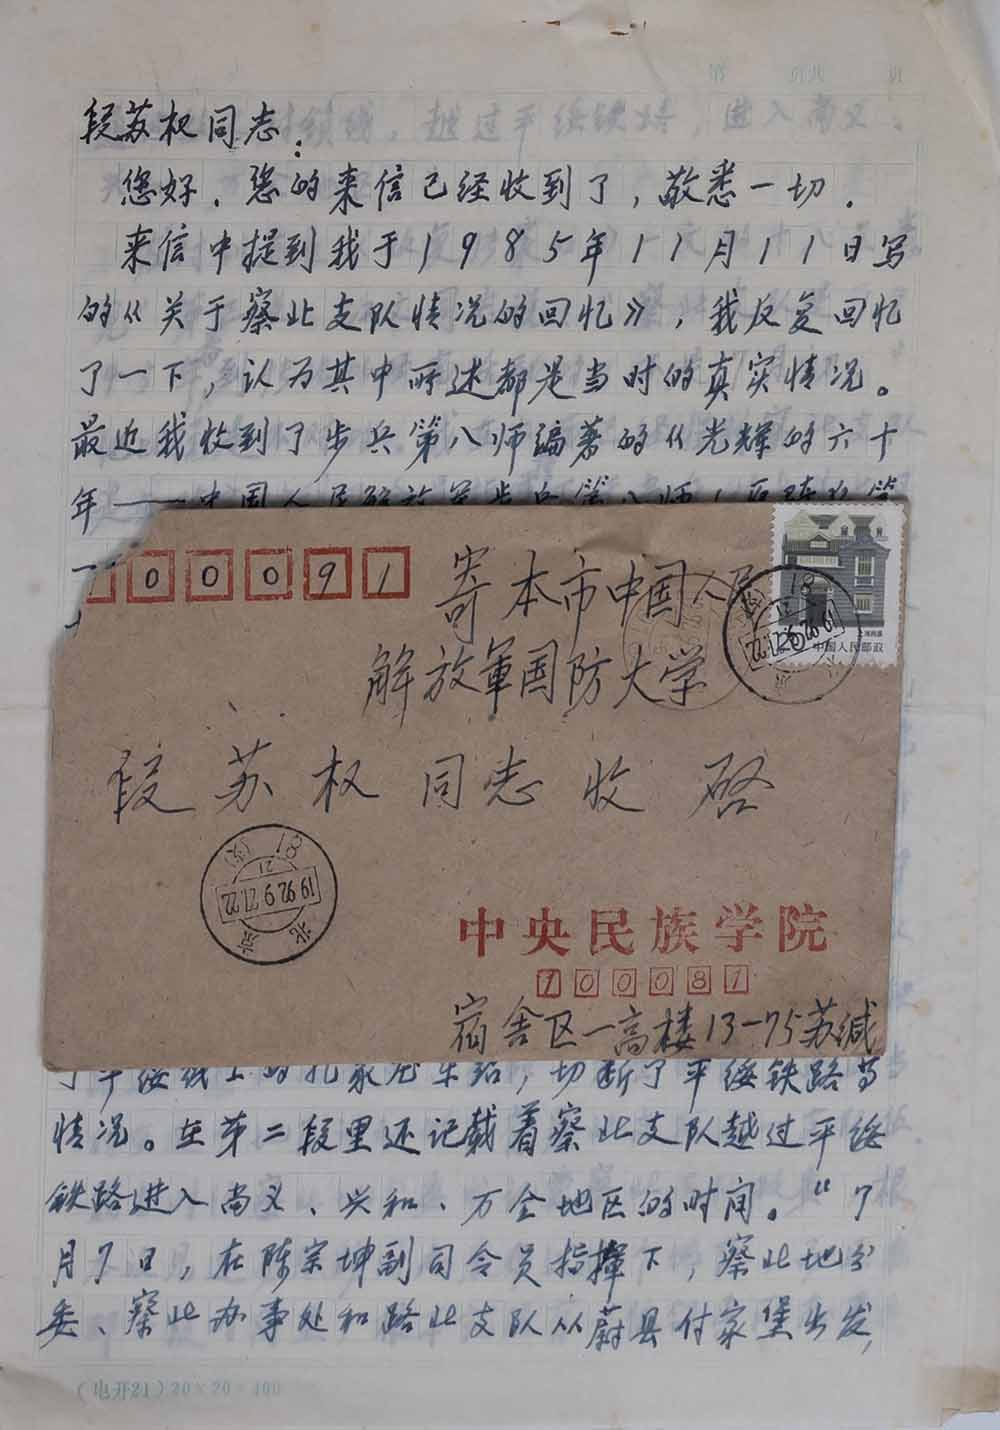 第 页共 页
段苏权同志：
您好．您的来信已经收到了，敬悉一切．
来信中提到我于1985年11月11日写
的《关于察北支队情况的回忆》，我反复回忆
了一下，认为其中所述都是当时的真实情况。
最近我收到了步兵第八师编著的《光辉的六十
年——中国人民解放军步兵第八师
00091
寄本市中国人民
解放軍国防大学
段苏权同志收启
上海民居
中国人民邮政
北京
1992.9.21.22
中央民族学院
100081
宿舍区一高楼13-75苏缄
了平绥线上的孔家庄车站，切断了平绥铁路等
情况。在第二段里还记载着察北支队越过平绥
铁路进入尚义、兴和、万全地区的时间。“7
月7日，在陈宗坤副司令员指揮下，察北地分
委、察北办事处和路北支队从蔚县付家堡出发，
(电开21)20×20=400